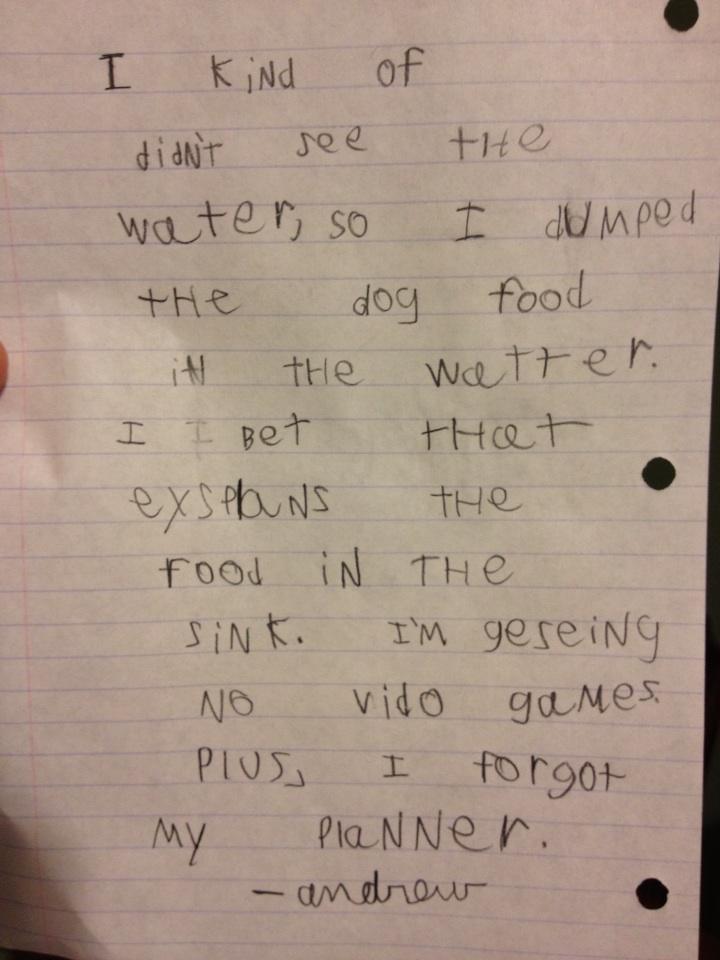 I KiNd of
didN'T see tHe
water, so I dUMped
tHe dog food
iN tHe watter.
I I Bet tHat
exsplaNs tHe
food iN THe
SiNK. I'M geseiNg
NO vido gaMes.
PlUS, I forgot
My PlaNNer.
- andrew